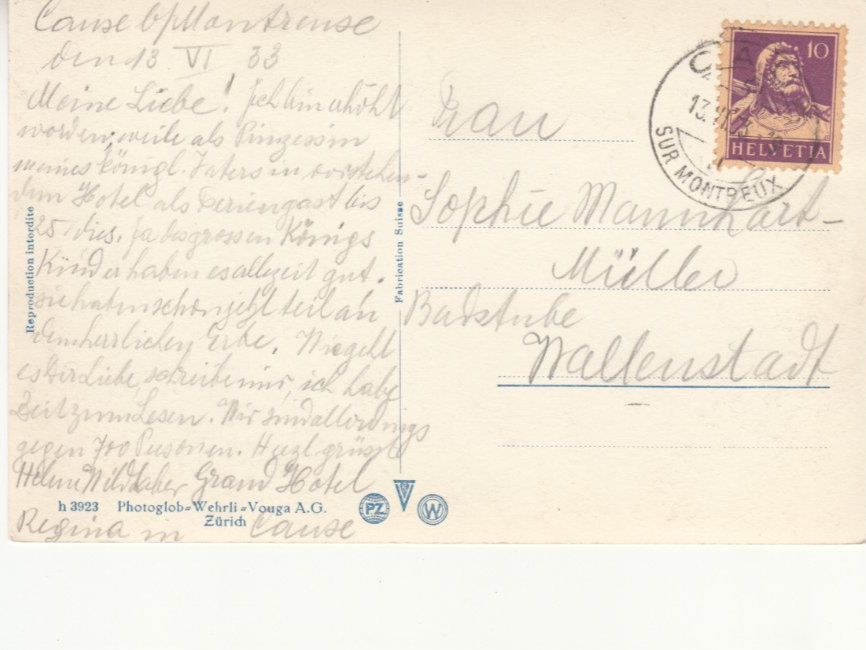 Cause b/Montreuse
den 13 VI 33
Meine Liebe! Ich bin erhöht
worden, weile als Prinzessin
meines königl. Vaters in vorstehen-
dem Hotel als Feriengast bis
25. dies. ja des grossen Königs
Kinder haben es allezeit gut.
sie haben schon jetzt teil an
dem herrlichen Erbe. Wie geht
es Dir Liebe, schreibe mir, ich habe
Zeit zum Lesen. Wir sind allerdings
gegen 700 Personen. Herzl. grüsst
Helene Grand Hotel
Regina in Cause
Frau
Sophie Mannhart-
Müller
Badstube
Wallenstadt
HELVETIA
10
13.VI.
SUR MONTREUX
Reproduction interdite
Fabrication Suisse
h 3923 Photoglob-Wehrli-Vouga A.G.
Zürich
PZ
W